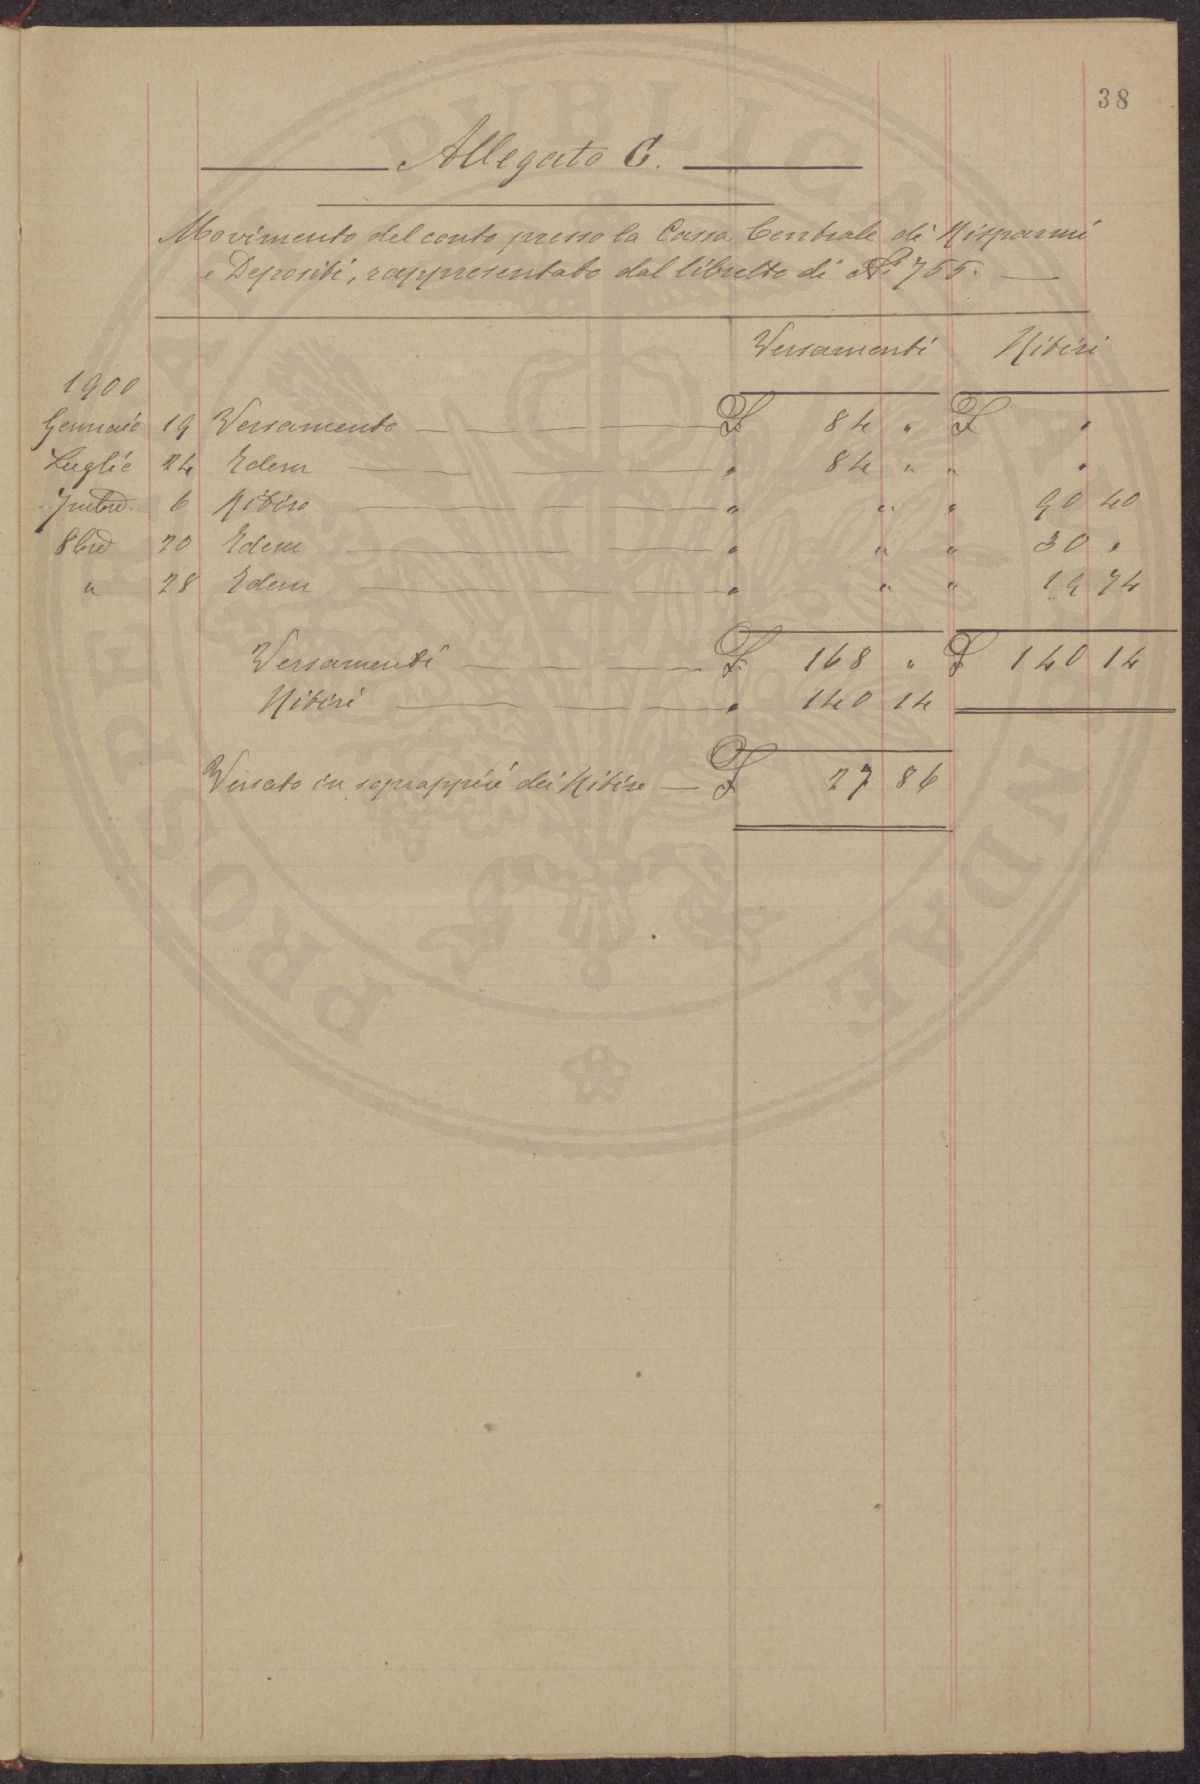 38
Allegato C.
Movimento del conto presso la Cassa Centrale di Risparmi
e Depositi, rappresentato dal libretto di No 755.
Versamenti Ritiri
1900
Gennaio 19 Versamento £ 84 " £ "
Luglio 24 Idem " 84 " " "
7mbre 6 Ritiro " " " 90 40
8bre 20 Idem " " " 30 "
" 28 Idem " " " 19 74
Versamenti £ 168 " £ 140 14
Ritiri " 140 14
Versato in soprappiù dei Ritiri £ 27 86
PROSPERITATI PUBLICAE AUGENDAE